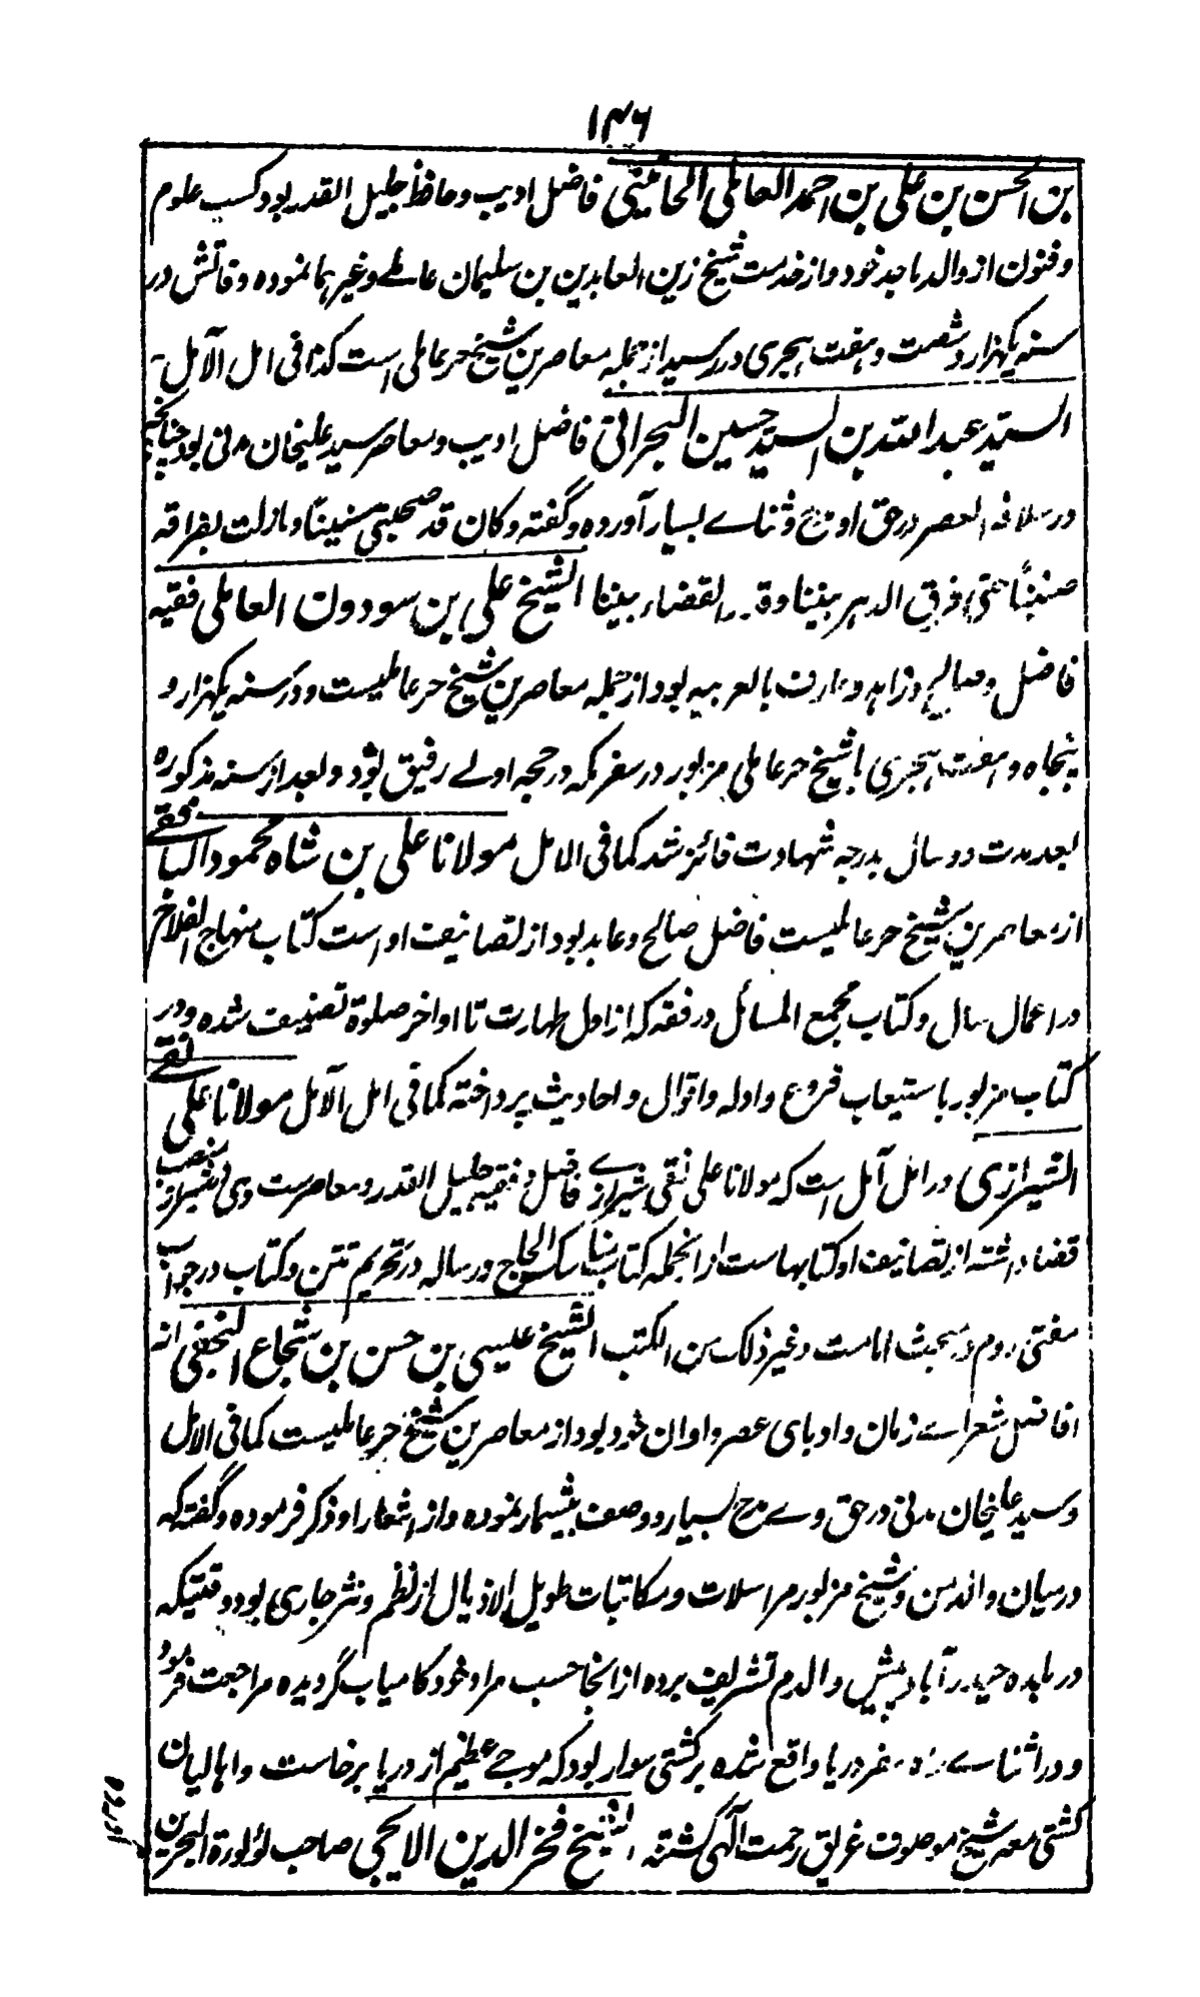 ۱۴۶
بن الحسن بن علی بن احمد العاملی الحانینی فاضل ادیب و حافظ جلیل القدر بود کسب علوم
و فنون از والد ماجد خود و از خدمت شیخ زین العابدین بن سلیمان عاملے و غیرہما نمودہ وفاتش در
سنہ یکہزار و شصت و ہفت ہجری در رسید از جملہ معاصرین شیخ حر عاملی است کذا فی امل الآمل
السید عبد اللہ بن السید حسین البحرانی فاضل ادیب و معاصر سید علیخان مدنی بود چنانچہ
در سلافۃ العصر در حق او مدح و ثناے بسیار آوردہ و گفتہ و کان قد صحبنی سنینا و مازلت بفراقہ
ضنینًا حتی فرق الدھر بیننا و القضاء بیننا الشیخ علی بن سودون العاملی فقیہ
فاضل و صالح و زاہد و عارف بالعربیہ بود از جملہ معاصرین شیخ حر عاملیست و در سنہ یکہزار و
پنجاہ و ہفت ہجری با شیخ حر عاملی مزبور در سفر مکہ در حجہ اولے رفیق بود و بعد از سنہ مذکورہ
بعد مدت دو سال بدرجہ شہادت فائز شد کما فی الامل مولانا علی بن شاہ محمود البافقے
از معاصرین شیخ حر عاملیست فاضل صالح و عابد بود از تصانیف او است کتاب منہاج الفلاح
در اعمال سال و کتاب مجمع المسائل در فقہ کہ از اول طہارت تا اواخر صلوۃ تصنیف شدہ و در
کتاب مزبور باستیعاب فروع و ادلہ و اقوال و احادیث پرداختہ کما فی امل الآمل مولانا علی نقے
الشیرازی در امل آمل است کہ مولانا علی نقی شیرازے فاضل و فقیہ جلیل القدر و معاصرست وی در شیراز منصب
قضا داشتہ از تصانیف او کتابہاست ازانجملہ کتاب مناسک الحاج و رسالہ در تحریم تتن و کتاب در جواب
مفتی روم در مبحث امامت و غیر ذلک من الکتب الشیخ عیسی بن حسن بن شجاع النجفی انہ
افاضل شعراے زمان و ادبای عصر و اوان خود بود از معاصرین شیخ حر عاملیست کما فی الامل
و سید علیخان مدنی در حق وے مدح بسیار و وصف بیشمار نمودہ و از اشعار او ذکر فرمودہ و گفتہ کہ
درمیان والد من و شیخ مزبور مراسلات و مکاتبات طویل الاذیال از نظم و نثر جاری بود و قتیکہ
در بلدہ حیدرآباد پیش والدم تشریف بردہ ازانجا حسب مراد خود کامیاب گردیدہ مراجعت فرمود
و در اثناے راہ سفر دریا واقع شدہ بر کشتی سوار بود کہ موجے عظیم از دریا برخاست و اہالیان
کشتی معہ شیخ موصوف غریق رحمت الٰہی گشتند الشیخ فخر الدین الایجی صاحب لؤلؤۃ البحرین
آوردہ